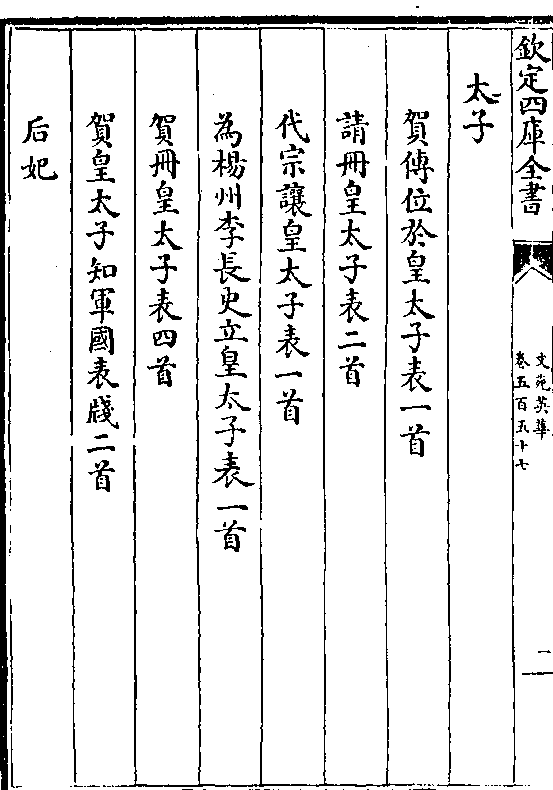 欽定四庫全書
文苑英華
卷五百五十七
一
太子
賀傳位於皇太子表一首
請冊皇太子表二首
代宗讓皇太子表一首
為楊州李長史立皇太子表一首
賀冊皇太子表四首
賀皇太子知軍國表牋二首
后妃